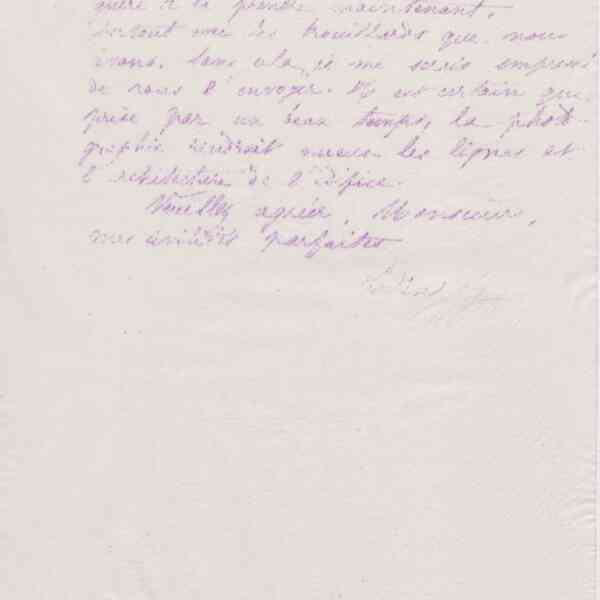 guère à la prendre maintenant,
surtout avec les brouillards que nous
avons. Sans cela je me serais empressé
de vous l'envoyer. Il est certain que
prise par un beau temps, la photo-
graphie rendrait mieux les lignes et
l'architecture de l'édifice.
Veuillez agréer, Monsieur,
mes civilités parfaites